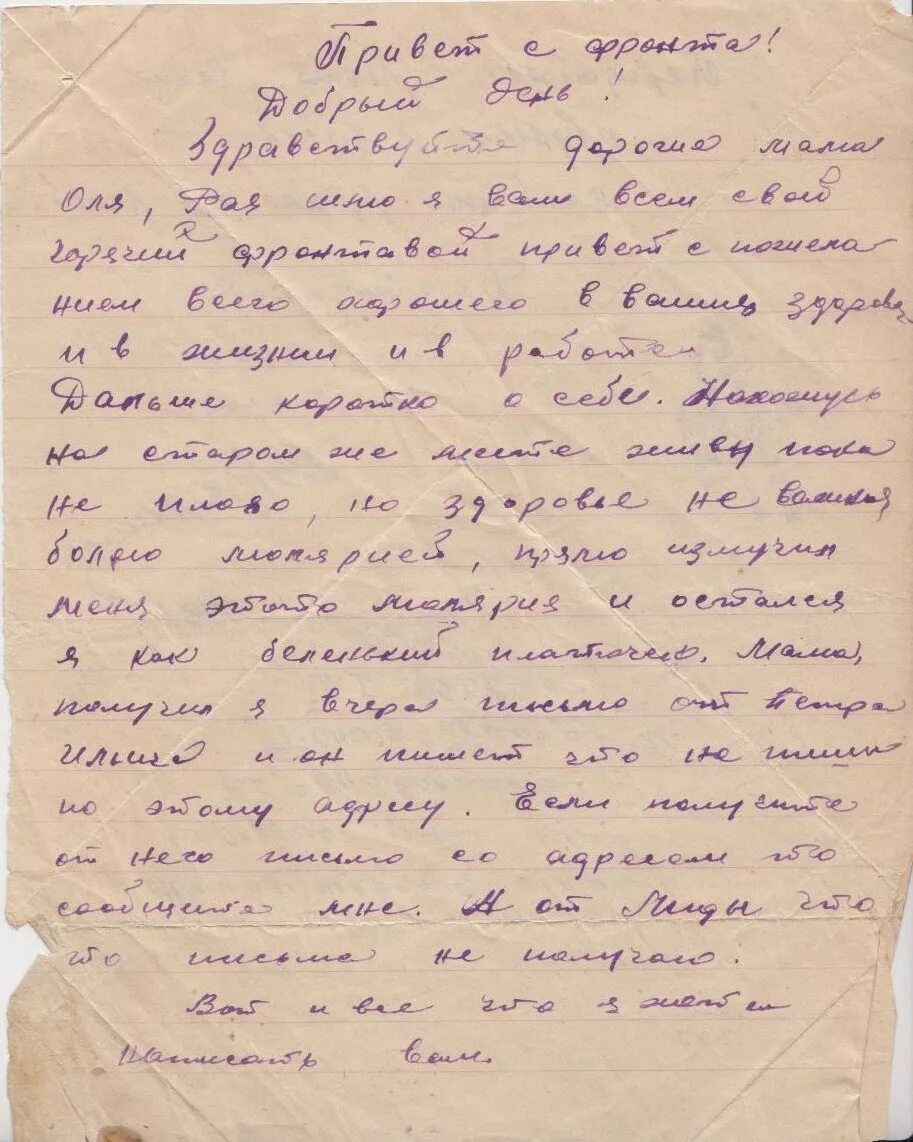 Привет с фронта!
Добрый день!
Здравствуйте дорогие мама
Оля, Рая шлю я вам всем свой
горячий фронтавой привет с пожела
нием всего харошего в вашия здоровье
и в жизни и в работе
Дальше коротко о себе. Нахожусь
на старом же месте живу пока
не плохо, но здоровье не важная
болею малярией, прямо измучил
меня эта малярия и остался
я как беленький платочек. Мама,
получил я вчера письмо от Петра
Ильича и он пишет что не пиши
по этому адресу. Если получите
от него письмо со адресом то
сообщите мне. А от Лиды что
то письма не получаю.
Вот и все что я хотел
Написать вам.